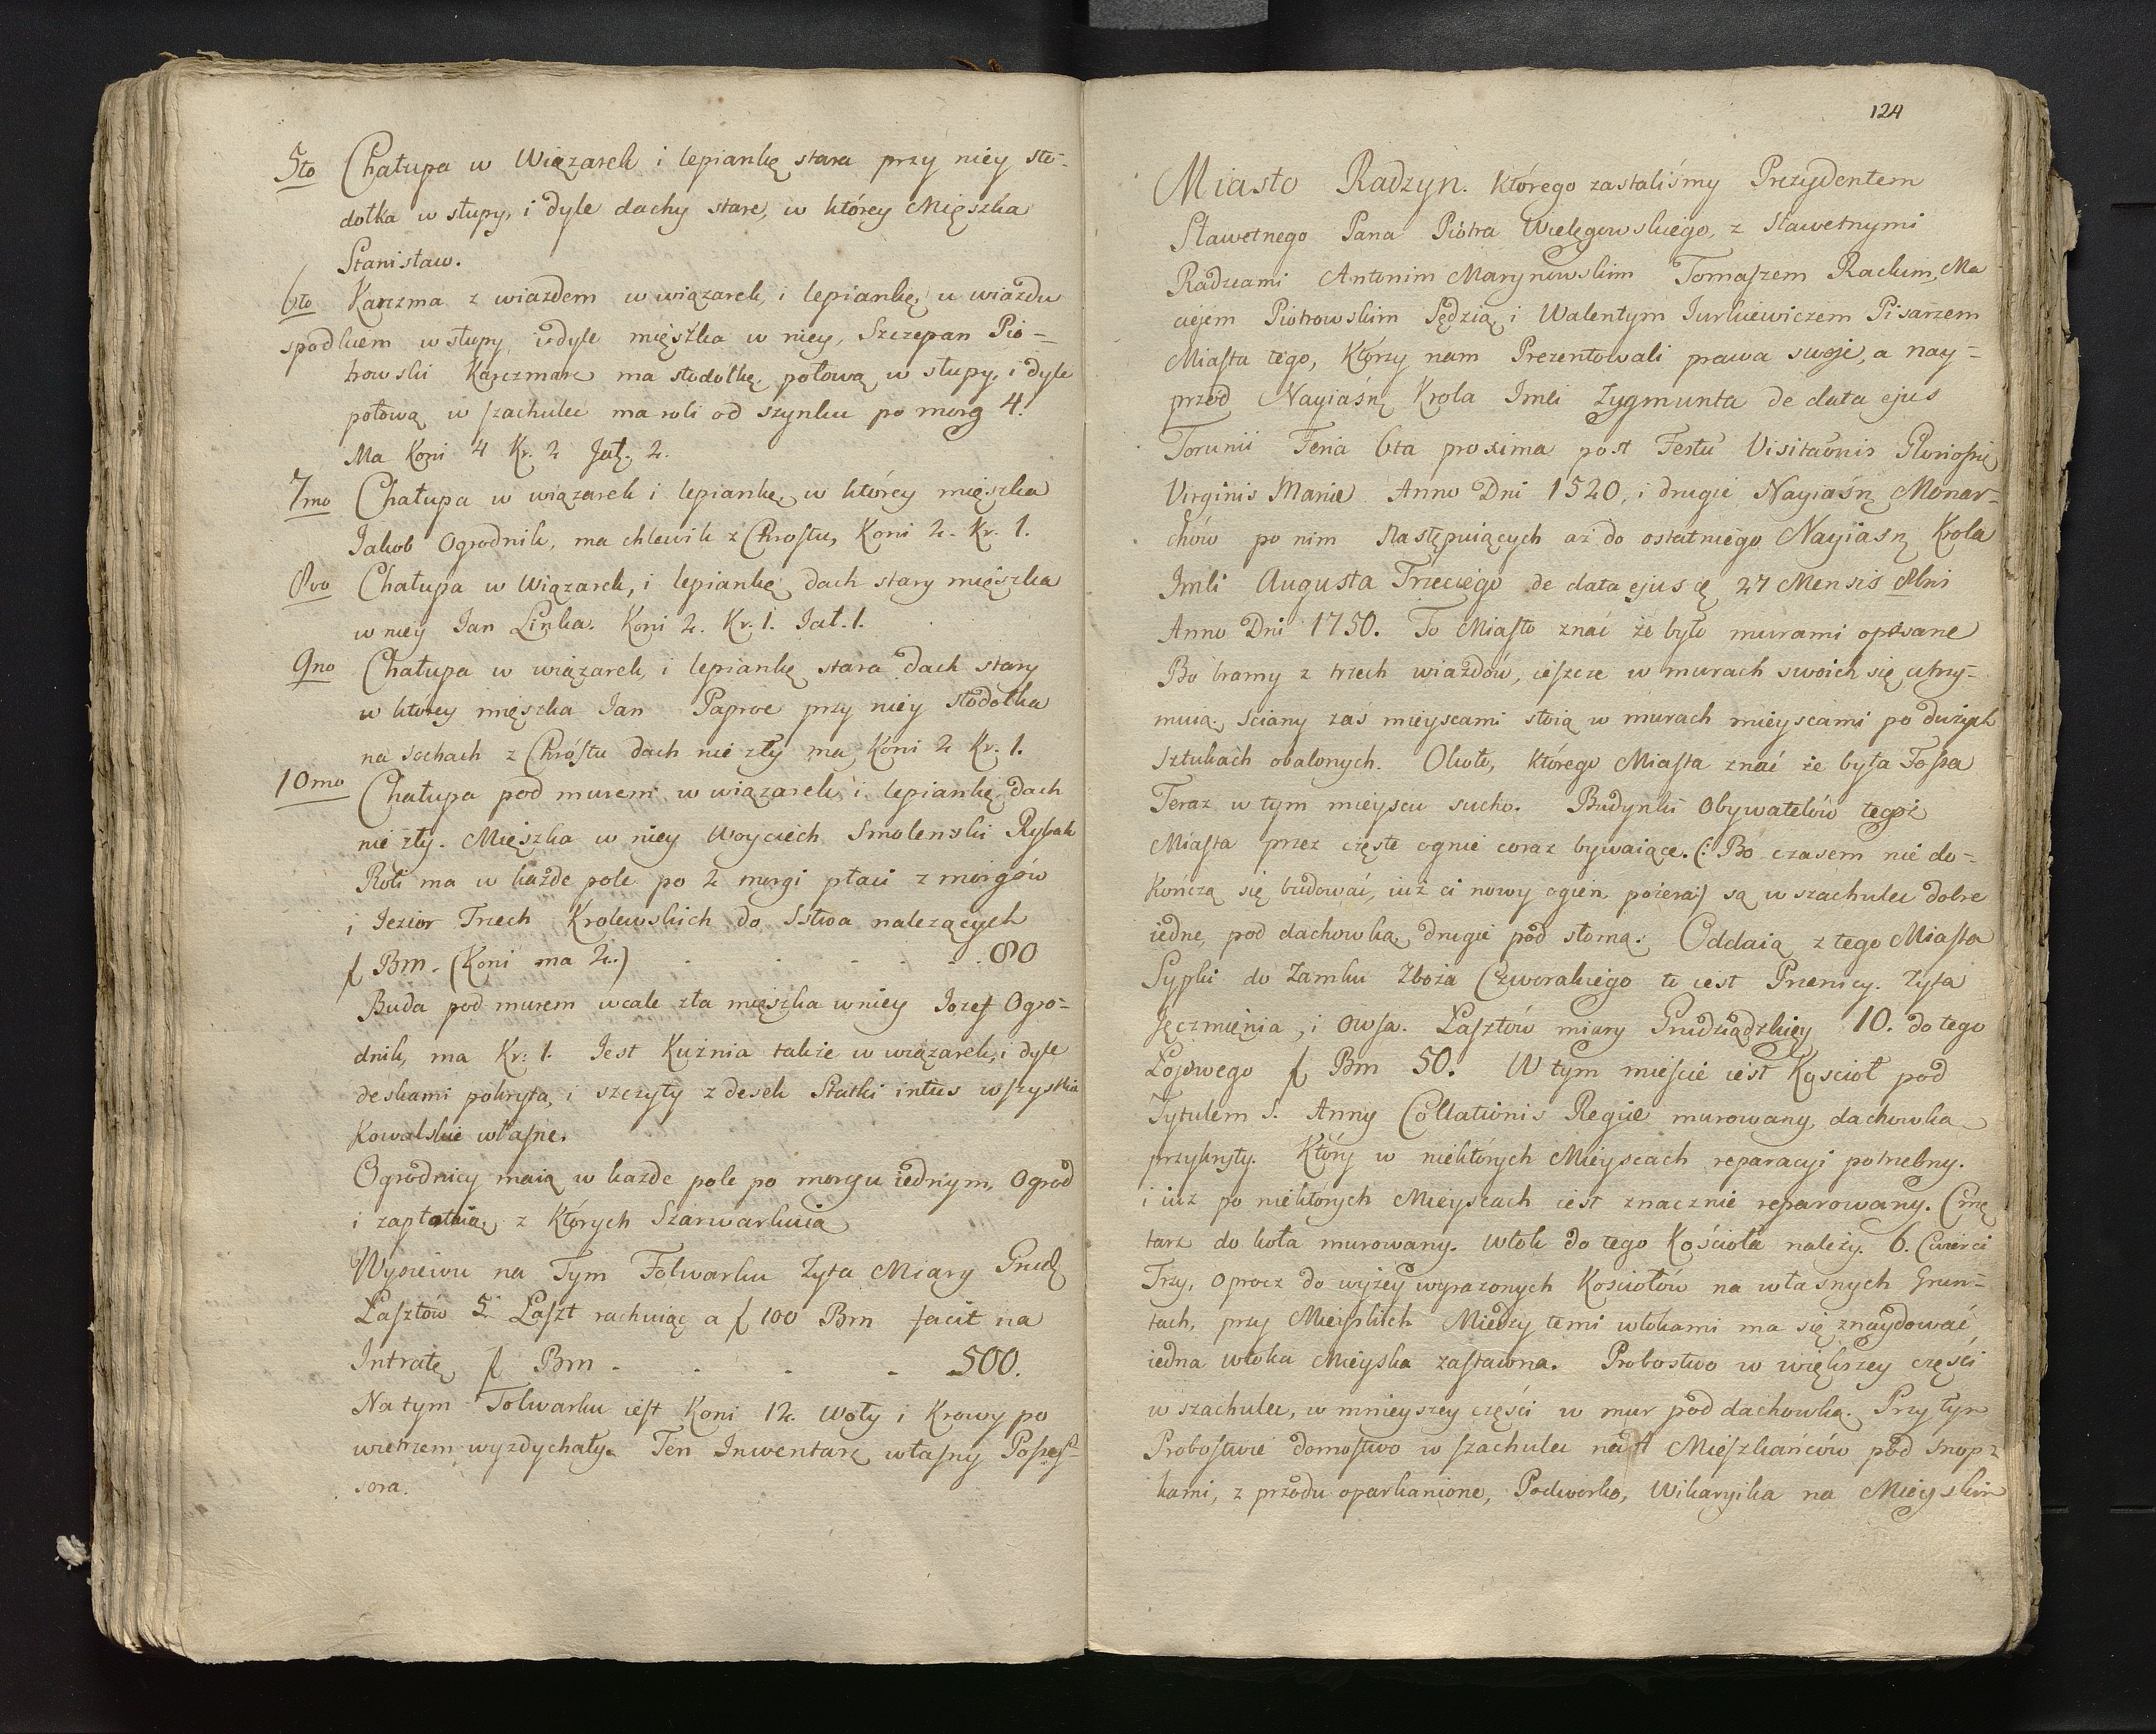 5to Chałupa w Wiązarek i lepiankę stara przy niey sto-
dołka w słupy, i dyle dachy stare, w którey Mięszka
Stanisław.
6to Karczma z wiazdem w wiązarek, i lepiankę, u wiazdu
spodkiem w słupy i dyle mięszka w niey, Szczepan Pio-
trowski Karczmarz ma stodołkę połową w słupy, i dyle
połową w szachulec ma roli od szynku po morg 4.
Ma Koni 4 Kr. 2 Jał. 2.
7mo Chałupa w wiązarek i lepiankę, w którey mięszka
Iakob Ogrodnik, ma chlewik z Chrostu, Koni 2. Kr. 1.
8vo Chałupa w Wiązarek, i lepiankę dach stary mięszka
w niey Ian Linka. Koni 2. Kr. 1. Iał. 1.
9no Chałupa w wiązarek, i lepiankę stara dach stary
w ktorey mięszka Ian Paproc przy niey stodołka
na sochach z Chróstu dach nie zły ma Koni 2 Kr. 1.
10mo Chałupa pod murem w wiązarek, i lepiankę, dach
nie zły. Mięszka w niey Woyciech Smolenski Rybak
Roli ma w każde pole po 2 morgi płaci z morgów
i Iezior Trzech Krolewskich do Sstwa nalezących
f Bm. (Koni ma 2.) - - - - - 80
Buda pod murem wcale zła mięszka w niey Iozef Ogro-
dnik, ma Kr: 1. Iest Kuźnia także w wiązarek, i dyle
deskami pokryta, i szczyty z desek Statki intus wszystkie
Kowalskie własne.
Ogrodnicy maią w każde pole po morgu iednym, Ogrod
i zapłotnią, z Których Szarwarkuią
Wysiewu na Tym Folwarku Zyta Miary Grudz
Łasztow 5. Łaszt rachuiąc a f 100 Bm facit na
Intratę f Bm - - - - 500.
Na tym Folwarku iest Koni 12. Woły i Krowy po
wietrzem wyzdychały. Ten Inwentarz własny Posses-
sora.
124
Miasto Radzyn. Którego zastaliśmy Prezydentem
Sławetnego Pana Piotra Wielęgowskiego, z Sławetnymi
Radzcami Antonim Marynowskim Tomaszem Rackim, Ma
ciejem Piotrowskim Sędzią i Walentym Iurkiewiczem Pisarzem
Miasta tego, Którzy nam Prezentowali prawa swoje, a nay-
przód Nayiaśn Krola Imći Zygmunta de data ejus
Torunii Feria 6ta proxima post Festu Visitaonis Gloriosae
Virginis Mariae Anno Dni 1520, i drugie Nayiaśn Monar-
chów po nim Następuiących aż do ostatniego Nayiaśn Krola
Imći Augusta Trzeciego de data ejus 27 Mensis 8bris
Anno Dni 1750. To Miasto znać że było murami opasane
Bo bramy z trzech wiazdów, ieszcze w murach swoich się utrzy-
muią, sciany zaś mieyscami stoią w murach mieyscami po dużych
sztukach obalonych. Około, którego Miasta znać że była Fossa
Teraz w tym mieyscu sucho. Budynki Obywatelów tegoż
Miasta przez częste ognie coraz bywaiące. (: Bo czasem nie do-
kończą się budować, iuż ci nowy ogien pożera :) są w szachulec dobre
iedne, pod dachowką, drugie pod słomą. Oddaią z tego Miasta
Sypki do Zamku Zboża Czworakiego to iest Przenicy. Zyta
Jęczmięnia, i Owsa. Łasztów miary Grudziądzkiey 10. do tego
Łojowego f Bm 50. W tym mieście iest Kościoł pod
Tytułem S. Anny Collationis Regiae murowany, dachowką
przykryty. Który w niektórych Mieyscach reparacyi potrzebny.
i iuż po niektórych Mieyscach iest znacznie reparowany. Cmę
tarz do koła murowany. Włok do tego Kościoła należy. 6. Cwierci
Trzy, oprocz do wyżey wyrazonych Kościołow na własnych Grun-
tach, przy Mieyskich Między temi włokami ma się znaydować
iedna włoka Mieyska zastawna. Probostwo w większey części
w szachulec, w mnieyszey części w mur pod dachowką. Przy tym
Probostwie domostwo w szachulec na 4 Mieszkańców pod snop
kami, z przodu oparkanione, Podworko, Wikaryika na Mieyskim